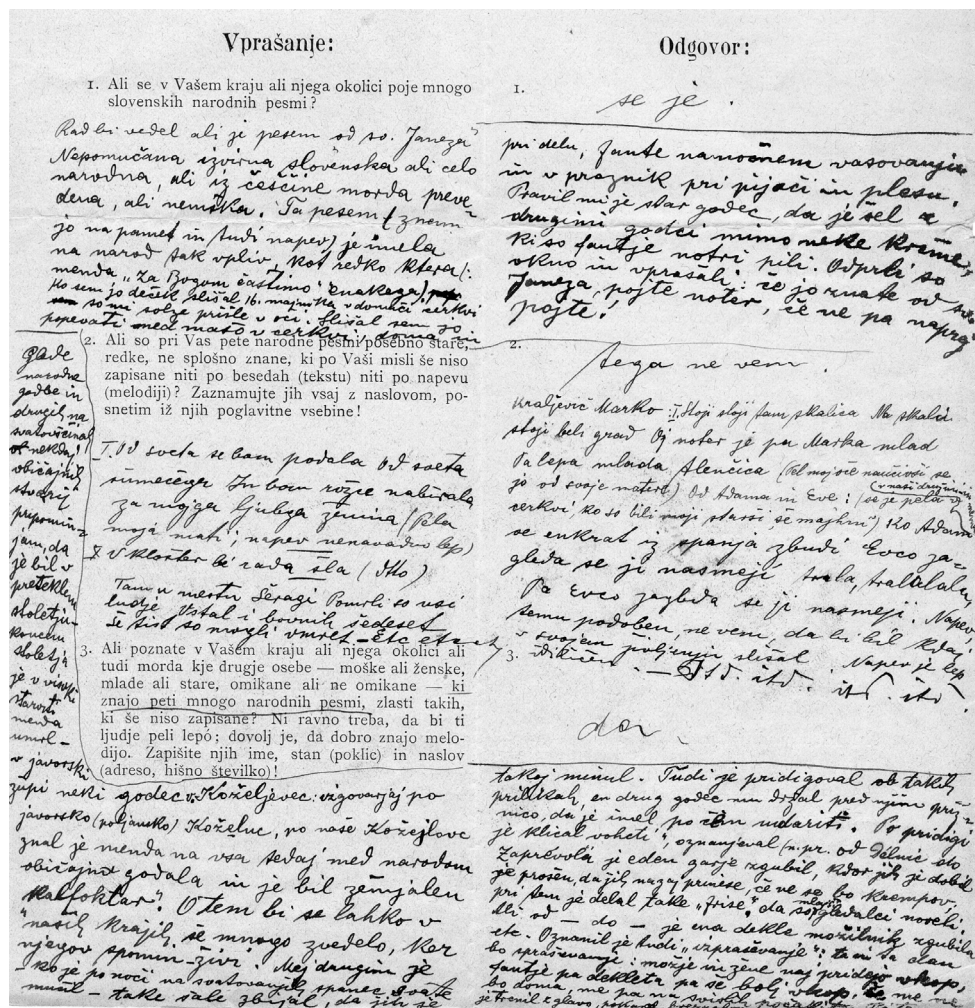 Vprašanje:
1. Ali se v Vašem kraju ali njega okolici poje mnogo
slovenskih narodnih pesmi?
Rad bi vedel ali je pesem od sv. Janeza
Nepomučana izvirna slovenska ali celo
narodna, ali iz češčine morda preve-
dena, ali nemška. Ta pesem (znam
jo na pamet in tudi napev) je imela
na narod tak vpliv, kot redko ktera:
menda „Za Bogom častimo"
ko sem jo deček slišal 16. majnika v domači cerkvi
so mi solze prišle v oči. Slišal sem jo
popevati med mašo v cerkvi
2. Ali so pri Vas pete narodne pesmi posebno stare,
redke, ne splošno znane, ki po Vaši misli še niso
zapisane niti po besedah (tekstu) niti po napevu
(melodiji)? Zaznamujte jih vsaj z naslovom, po-
snetim iž njih poglavitne vsebine!
I. Od sveta se bom podala Od sveta
šumečega In bom rožce nabirala
za mojga ljubga ženina (Pela
moja mati, napev nenavadno lep)
V klošter bi rada šla (dtto)
Tam v mestu Šeragi Pomrli so vsi
ludje Vstal i bovnih šedeset
Še tisto so mogli vmret – Etc etc
3. Ali poznate v Vašem kraju ali njega okolici ali
tudi morda kje drugje osebe — moške ali ženske,
mlade ali stare, omikane ali ne omikane — ki
znajo peti mnogo narodnih pesmi, zlasti takih,
ki še niso zapisane? Ni ravno treba, da bi ti
ljudje peli lepo; dovolj je, da dobro znajo melo-
dijo. Zapišite njih ime, stan (poklic) in naslov
(adreso, hišno številko)!
glede
narodne
godbe in
drugih na
svatovščinah
nekdaj
običajnih
stvarij
pripomin-
jam, da
je bil v
preteklem
stoletju
koncem
stoletja
je v visoki
starosti
menda
umrl –
v javorski
župi neki godec v Koželjevec: izgovarjaj po
javorsko (poljansko) Koželuc, po naše Kožejlovc
znal je menda na vsa sedaj med narodom
običajna godala in je bil zemjalen
„kalfoktar". O tem bi se lahko v
naših krajih še mnogo zvedelo, ker
njegov spomin živi. Mej drugim je
– ko je ponoči na svatovanju spanec svate
mučil – take šale zbijal, da jih je
Odgovor:
1.
se je.
pri delu, fante na nočnem vasovanju
in v praznik pri pijači in plesu.
Pravil mi je star godec, da je šel z
drugimi godci mimo neke krčme,
ki so fantje notri pili. Odprli so
okno in vprašali: če jo znate od sv.
Janeza, pojte noter, če ne pa naprej
pojte!
2.
tega ne vem.
Kraljevič Marko: I. Stoji stoji tam skalica Na skalici
stoji beli grad Oj noter je pa Marka mlad
Pa lepa mlada Alenčica (Pel moj oče naučivši se
jo od svoje matere) Od Adama in Eve: (se je pela v
(v naši družini
cerkvi, ko so bili moji starši še majhni) Ko Adam
se enkrat iz spanja zbudi Evco za-
gleda se ji nasmeji trala, tralalala,
Pa Evco zagleda se ji nasmeji. Napev
temu podoben, ne vem, da bi bil kdaj
v svojem življenju slišal. Napev je lep
3.
– Itd. itd. itd. itd.
da.
takoj minul. Tudi je pridigoval ob takih
prilikah, en drug godec mu držal pred njim
nico, da je imel po čem udariti. Po pridigi
je klical voheti", oznanjeval (n.pr. od Délnic do
Zaprévola je eden garje zgubil, kdor jih je dobil
je prosen, da jih nazaj prinese, če ne se bo krempov.
pri tem je delal take „friše", da so gledalci noreli.
mlajši
Ali od – do – je ena dekle možilnik zgubila
etc. Oznanil je tudi „izpraševanje": ta in ta dan
bo spraševanje: možje in žene naj pridejo vkup,
fantje pa dekleta pa še bolj vkup,
bo doma,